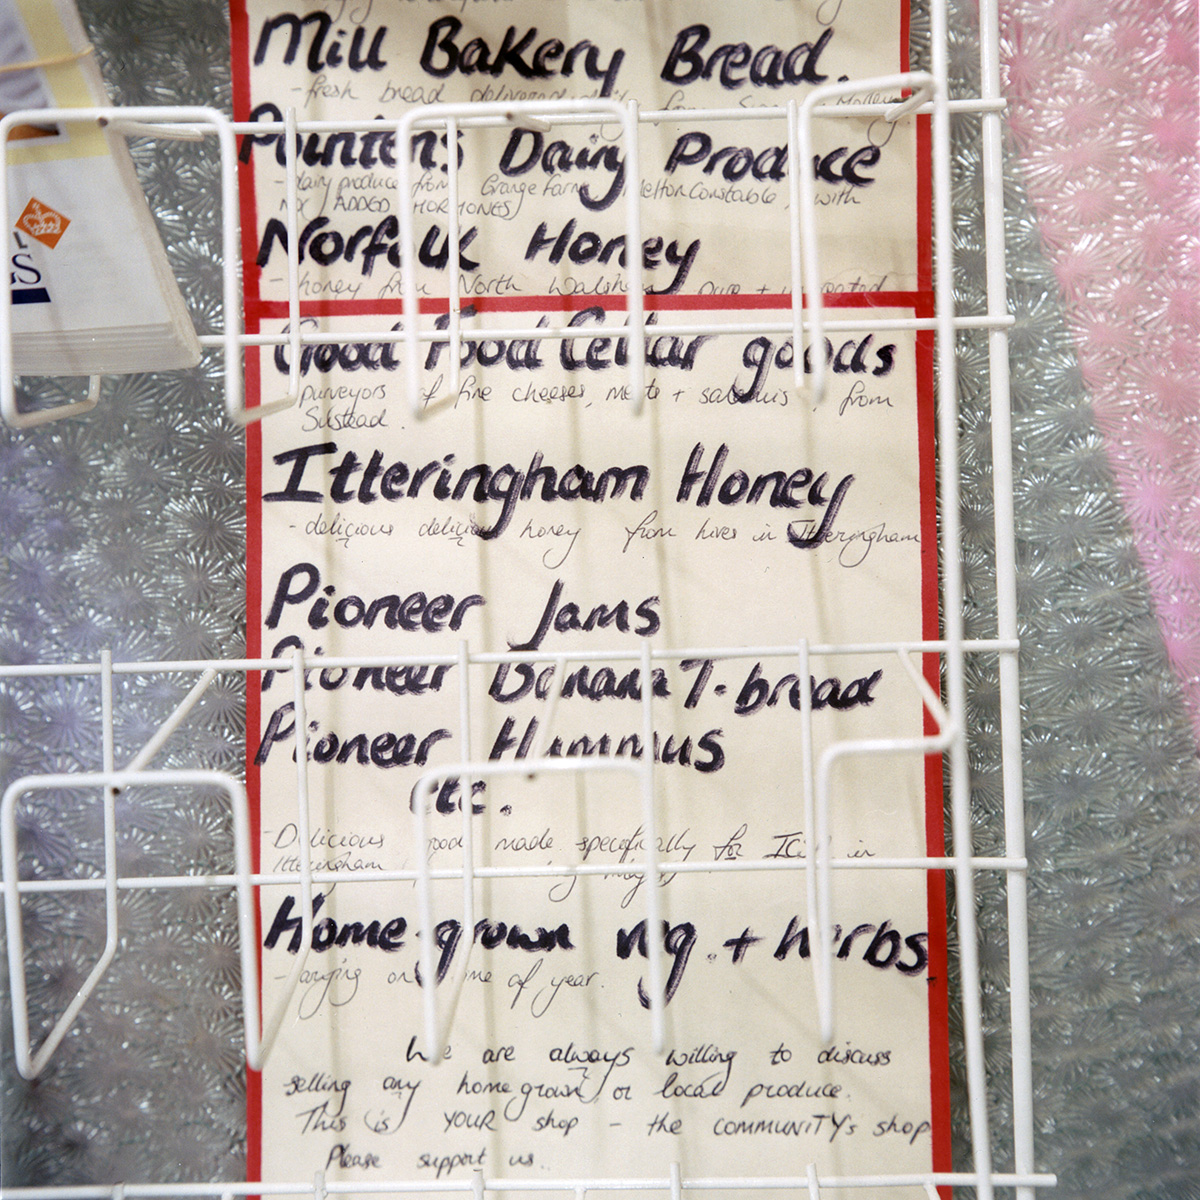 Mill Bakery Bread.
- fresh bread delivered from
Pointens Dairy Produce
- dairy produce from Grange Farm Melton Constable, with
NO ADDED HORMONES)
Norfolk Honey
- honey from North Walsham pure +
Good Food Cellar goods
purveyors of fine cheeses, meats + salamis, from
Sustead.
Itteringham Honey
- delicious delicious honey from hives in Itteringham
Pioneer Jams
Pioneer Banana T. bread
Pioneer Hummus
etc.
- Delicious food made specifically for in
Itteringham
Home-grown veg. + herbs.
- varying on time of year.
We are always willing to discuss
selling any home grown or local produce.
This is YOUR shop - the COMMUNITY's shop
Please support us..
S